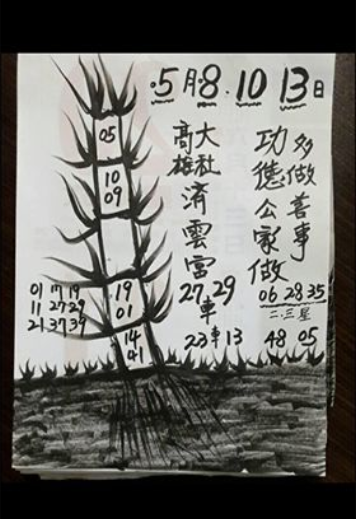 5月8.10 13日
多做善事
功德公家做
大社
高雄
済雲宮
27 29
車
23車13
06 28 35
二.三星
48 05
05
10
09
19
01
14
41
01 17 19
11 27 29
21 37 39